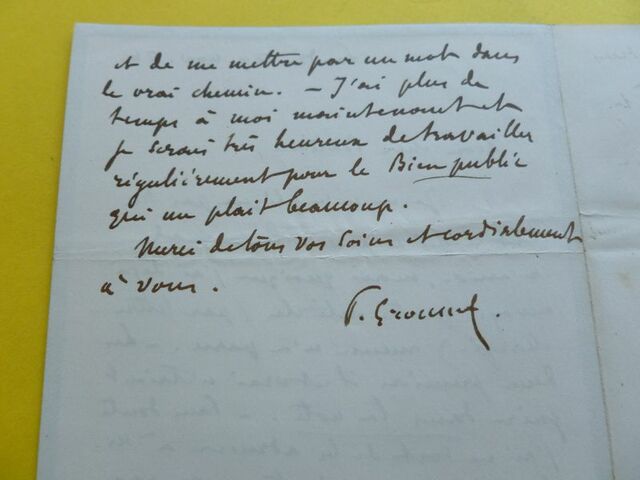 et de me mettre par un mot dans
le vrai chemin. — J'ai plus de
temps à moi maintenant et
je serais très heureux de travailler
régulièrement pour le Bien public
qui me plait beaucoup.
Merci de tous vos soins et cordialement
à vous.
P. Grousset.